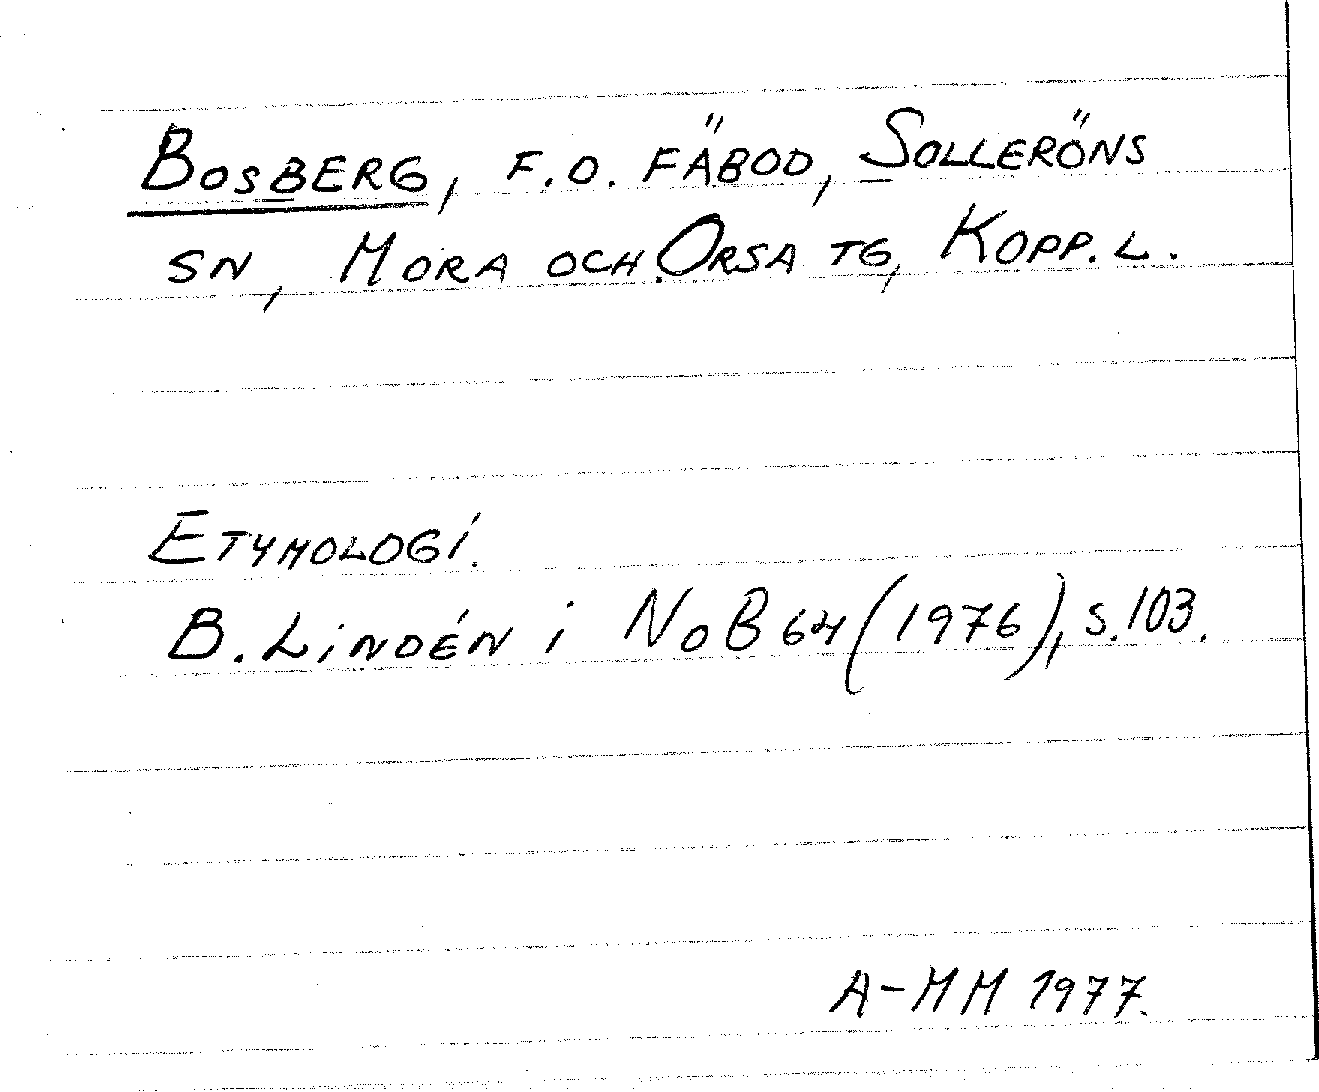 BOSBERG, F.O. FÄBOD, SOLLERÖNS
SN, MORA OCH ORSA TG, KOPP. L.
ETYMOLOGI.
B. LINDÉN i NoB 64 (1976), S. 103.
A-MM 1977.